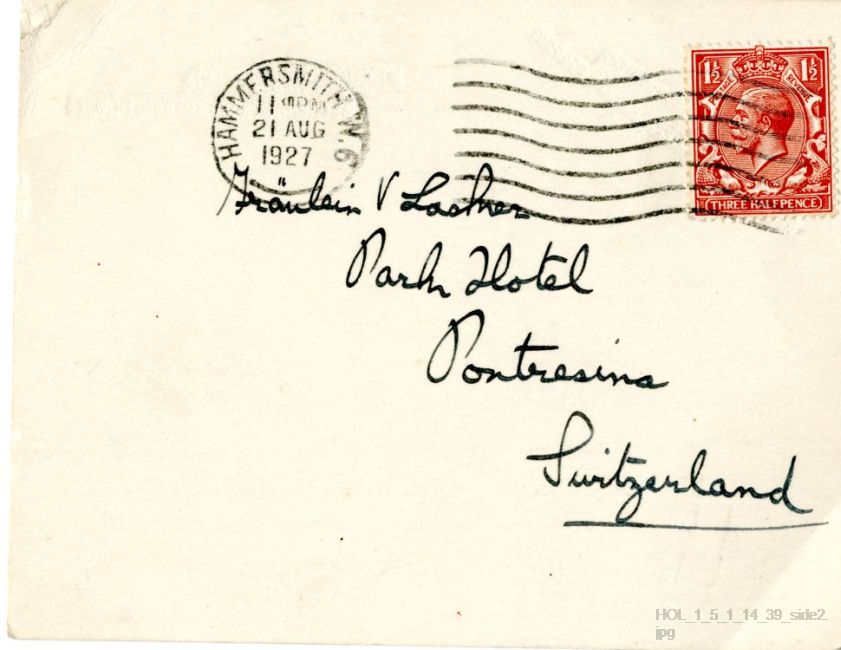 HAMMERSMITH W.6
11 PM
21 AUG
1927
"
1½ POSTAGE REVENUE 1½
THREE HALFPENCE
Fräulein V Lasker
Park Hotel
Pontresina
Switzerland
HOL_1_5_1_14_39_side2.
jpg